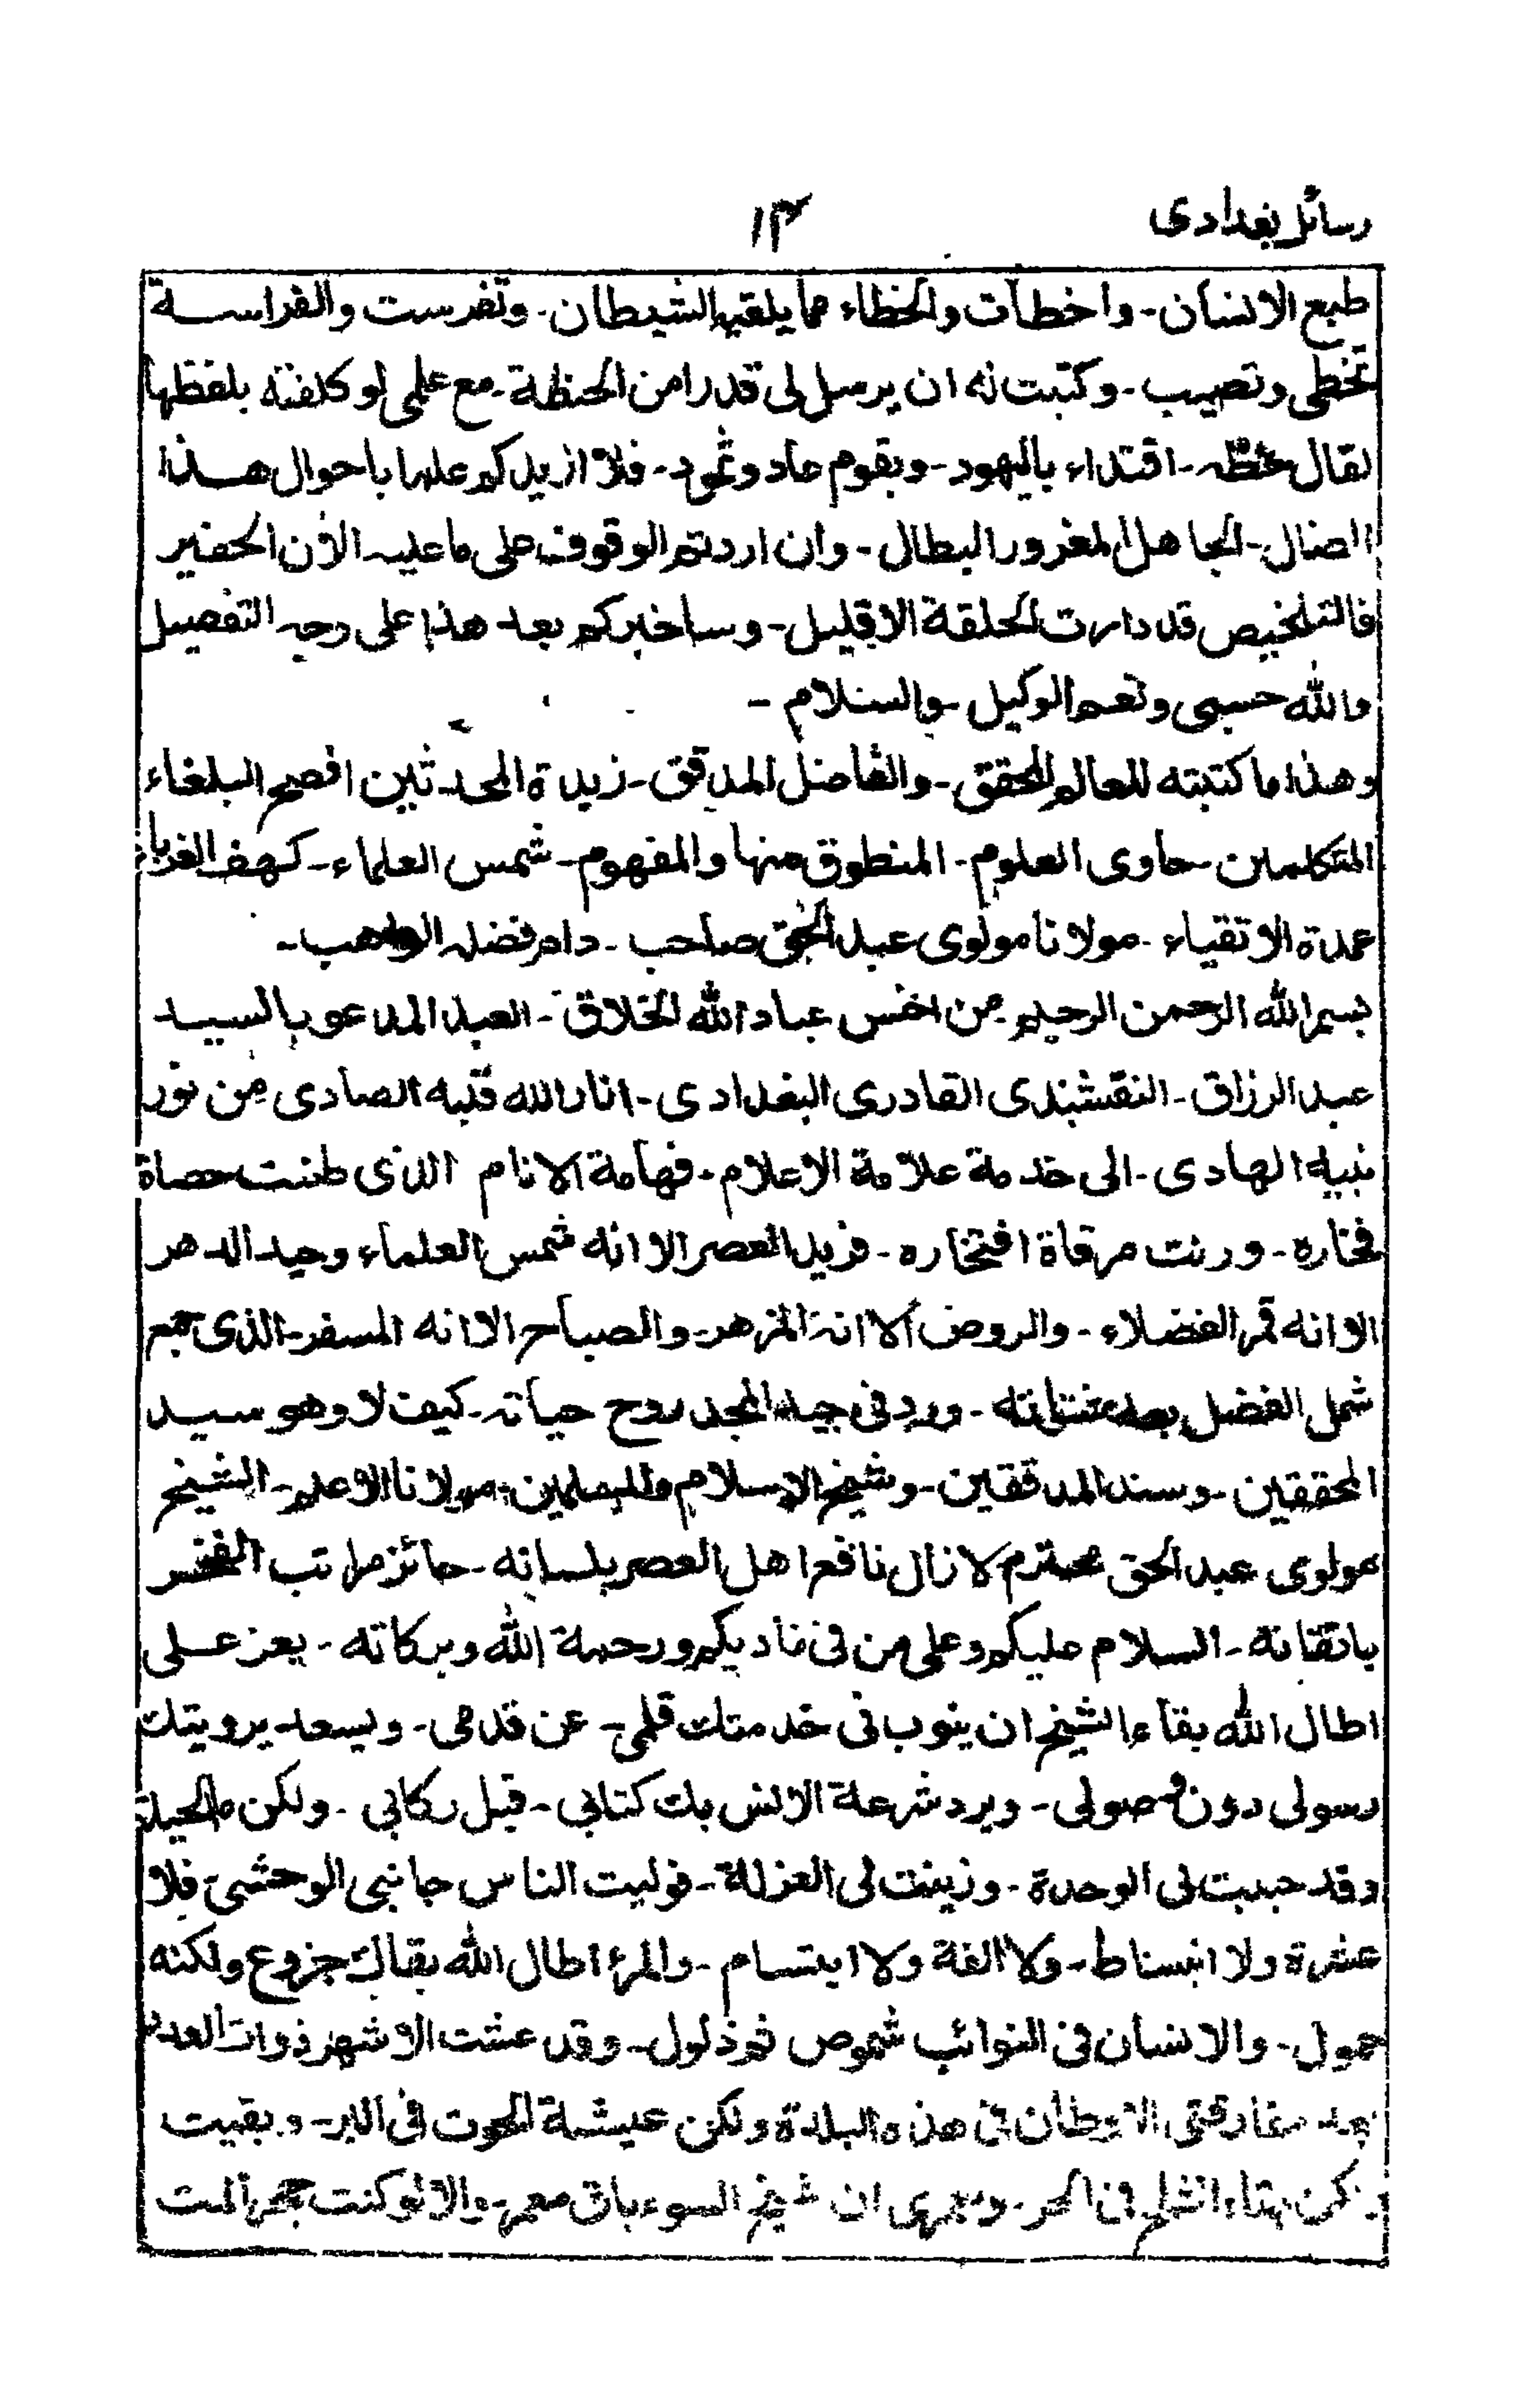 رسائل بغدادی
۱۳
طبع الانسان- واخطأت والخطاء مما يلقيه الشيطان- وتفرست والفراسة
تخطى وتصيب- وكتبت له ان يرسل لى قدرا من الحنطة- مع علمى لو كلفته بلفظها
لقال حنطه- اقتداء باليهود- وبقوم عاد وثمود- فلا ازيدكم علما باحوال هذا
الضال- الجاهل المغرور البطال- وان اردتم الوقوف على ما عليه الأن الحقير
فالتلخيص قد دارت الحلقة الا قليل- وساخبركم بعد هذا على وجه التفصيل
والله حسبى ونعم الوكيل- والسلام-
وهذا ما كتبته للعالم المحقق- والفاضل المدقق- زبدة المحدثين افصح البلغاء
المتكلمين- حاوى العلوم- المنطوق منها والمفهوم- شمس العلماء- كهف الغرباء
عمدة الاتقياء- مولانا مولوى عبد الحق صاحب- دام فضله الواهب-
بسم الله الرحمن الرحيم- من اخس عباد الله الخلاق- العبد المدعو بالسيد
عبد الرزاق- النقشبندى القادرى البغدادى- انار الله قلبه الصادى من نور
نبيه الهادى- الى خدمة علامة الاعلام- فهامة الانام الذى طنت حصاة
فخاره- ورنت مرقاة افتخاره- فريد العصر الا انه شمس العلماء وحيد الدهر
الا انه قمر الفضلاء- والروض الا انه المزهر- والصباح الا انه المسفر- الذى جمع
شمل الفضل بعد شتاته- ورد فى جيد المجد روح حياته- كيف لا وهو سيد
المحققين- وسند المدققين- وشيخ الاسلام والمسلمين- مولانا الاعلم- الشيخ
مولوى عبد الحق محترم لا زال نافع اهل العصر بلسانه- حائز مراتب الفخر
باتقانه- السلام عليكم وعلى من فى ناديكم ورحمة الله وبركاته- يعز على
اطال الله بقاء الشيخ ان ينوب فى خدمتك قلمى- عن قدمى- ويسعد برويتك
رسولى دون وصولى- ويرد شرعة الانس بك كتابى- قبل ركابى- ولكن ما الحيلة
وقد حببت لى الوحدة- وزينت لى العزلة- فوليت الناس جانبى الوحشى فلا
عشرة ولا انبساط- ولا الفة ولا ابتسام- والمرء اطال الله بقاك جزوع ولكنه
حمول- والانسان فى النوائب شموص ثم ذلول- وقد عشت الاشهر ذوات العدد
بعد مفارقتى الاوطان فى هذه البلدة ولكن عيشة الحوت فى البر- وبقيت
ولكن بقاء الثلج فى الحر- وعمرى ان شيخ السوء باق معمر- والا لو كنت